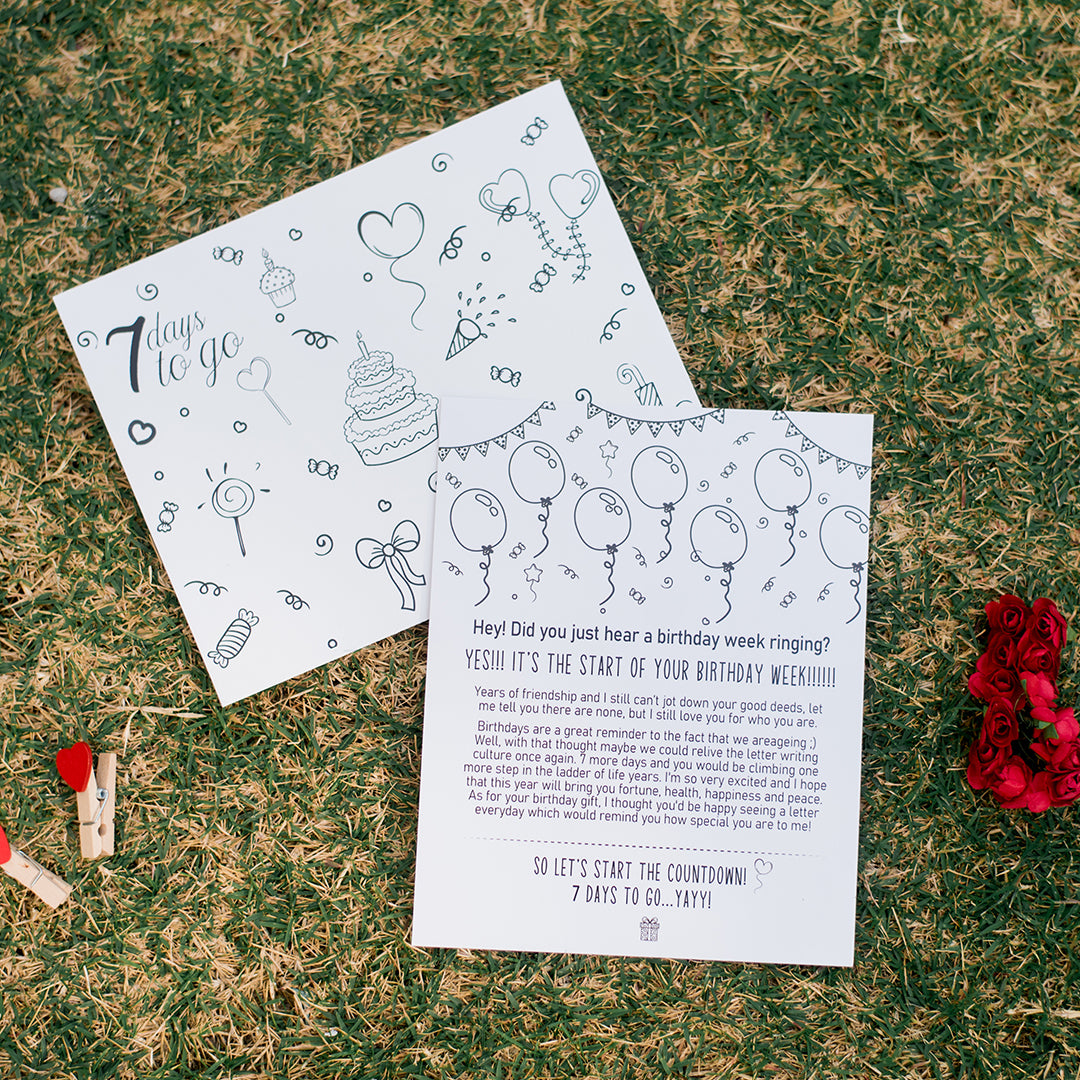 7 days
to go
Hey! Did you just hear a birthday week ringing?
YES!!! IT'S THE START OF YOUR BIRTHDAY WEEK!!!!!!
Years of friendship and I still can't jot down your good deeds, let
me tell you there are none, but I still love you for who you are.
Birthdays are a great reminder to the fact that we areageing ;)
Well, with that thought maybe we could relive the letter writing
culture once again. 7 more days and you would be climbing one
more step in the ladder of life years. I'm so very excited and I hope
that this year will bring you fortune, health, happiness and peace.
As for your birthday gift, I thought you'd be happy seeing a letter
everyday which would remind you how special you are to me!
SO LET'S START THE COUNTDOWN!
7 DAYS TO GO...YAYY!